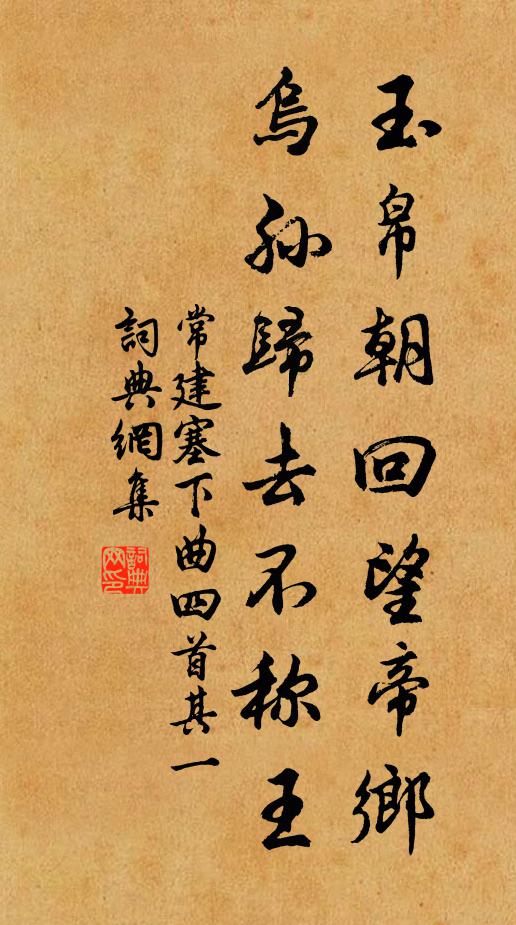 玉帛朝回望帝鄉
烏孫歸去不称王
常建塞下曲四首其一
詞典網集
詞典网印